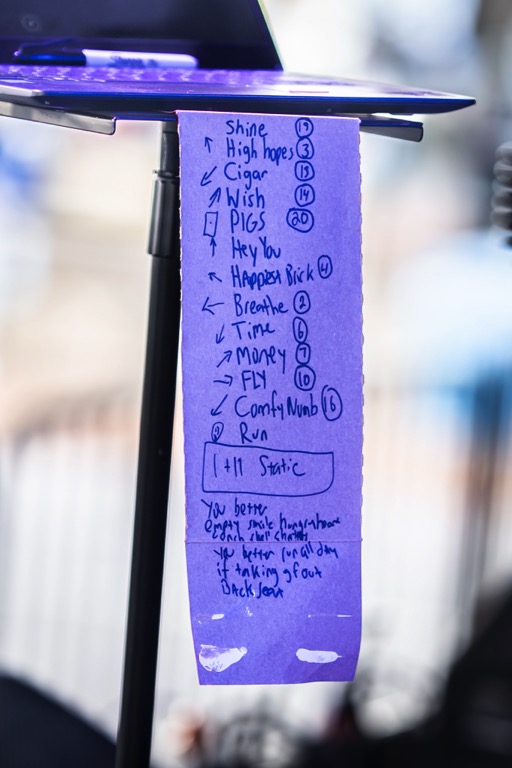 Shine 19
High hopes 3
Cigar 13
Wish 14
PIGS 20
Hey You
Happest Brick 4
Breathe 2
Time 6
Money 7
FLY 10
Comfy Numb 16
Run
1+11 Static
You better
empty smile hungry heart
You better run all day
if taking gf out
Back seat